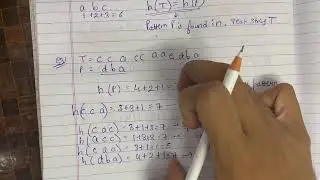 a b c
1+2+3=6
h(T) = h(P)
Pattern P is found in
T = c c a c c a a e d b a
P = d b a
h(P) = 4+2+1=7
h(c c a) = 3+3+1=7
h(c a c) = 3+1+3=7
h(a c c) = 1+3+3=7
h(c a a) = 3+1+1=5
h(d b a) = 4+2+1=7